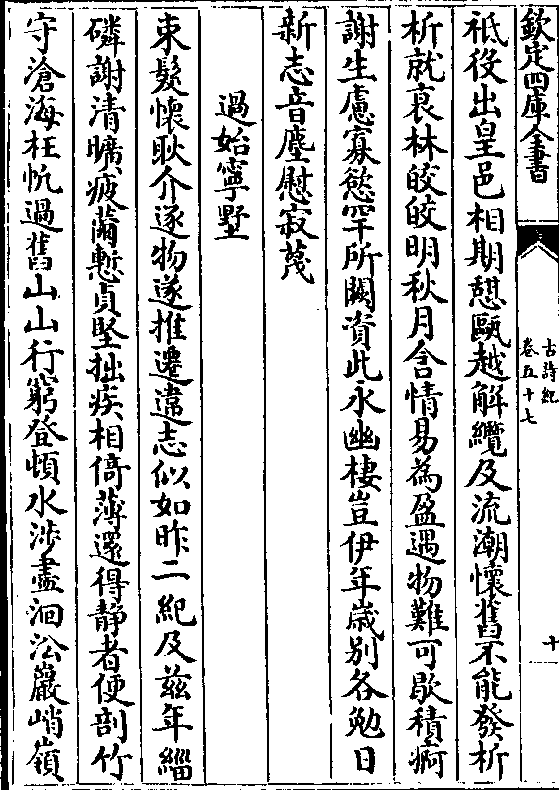 欽定四庫全書
古詩紀
卷五十七
十
祗役出皇邑相期憇甌越解纜及流潮懷舊不能發析
析就衰林皎皎明秋月含情易為盈遇物難可歇積痾
謝生慮寡慾罕所闕資此永幽棲豈伊年歲别各勉日
新志音塵慰寂蔑
過始寧墅
束髮懷耿介逐物遂推遷違志似如昨二紀及兹年緇
磷謝清曠疲薾慙貞堅拙疾相倚薄還得静者便剖竹
守滄海枉帆過舊山山行窮登頓水涉盡洄沿巖峭嶺